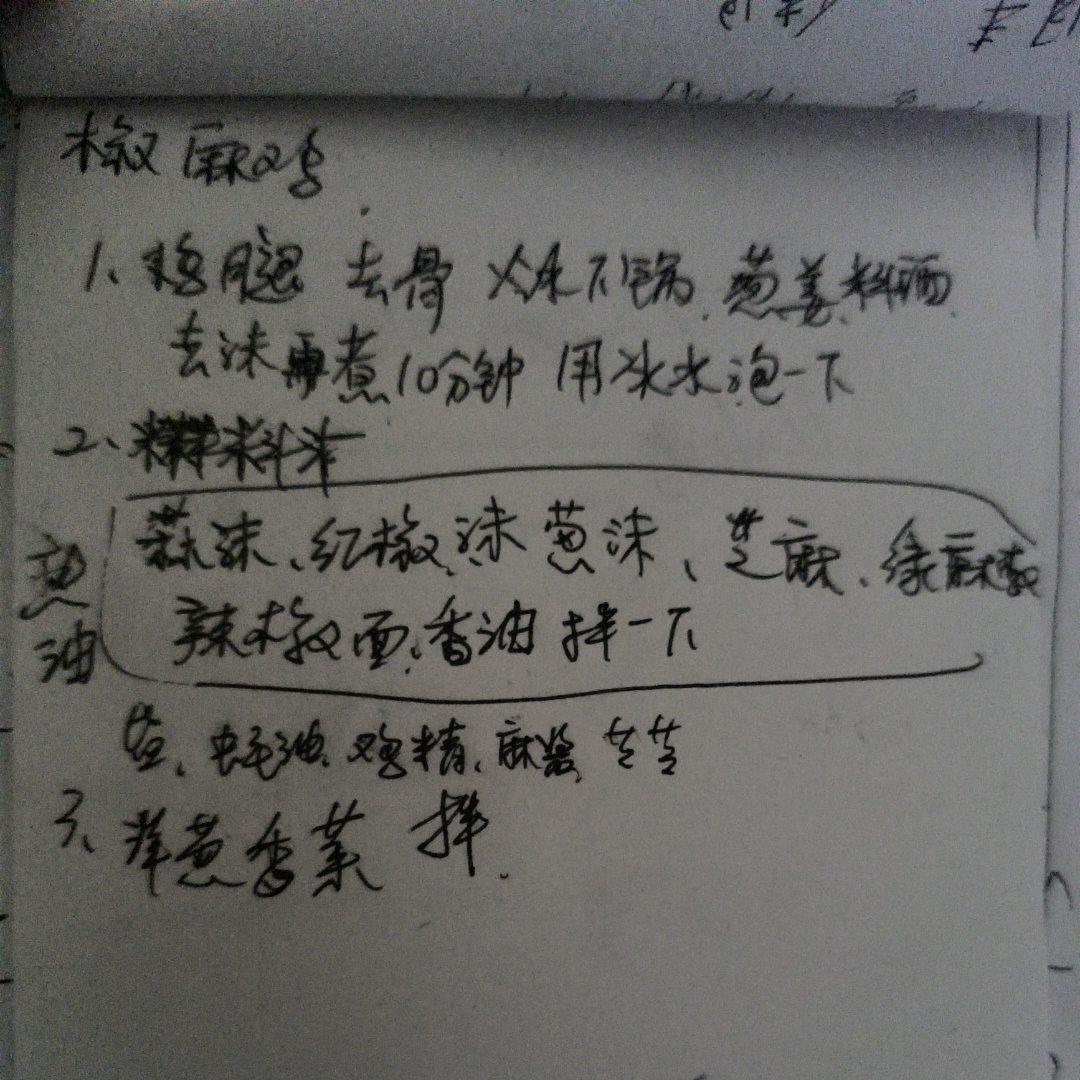 椒麻鸡
1、鸡腿 去骨 冷水下锅、葱姜、料酒、
去沫再煮10分钟 用冰水泡一下
2、料汁
蒜沫、红椒沫 葱沫、芝麻、绿麻椒
辣椒面、香油 拌一下
热油
盐、蚝油、鸡精、麻酱
3、洋葱香菜 拌.